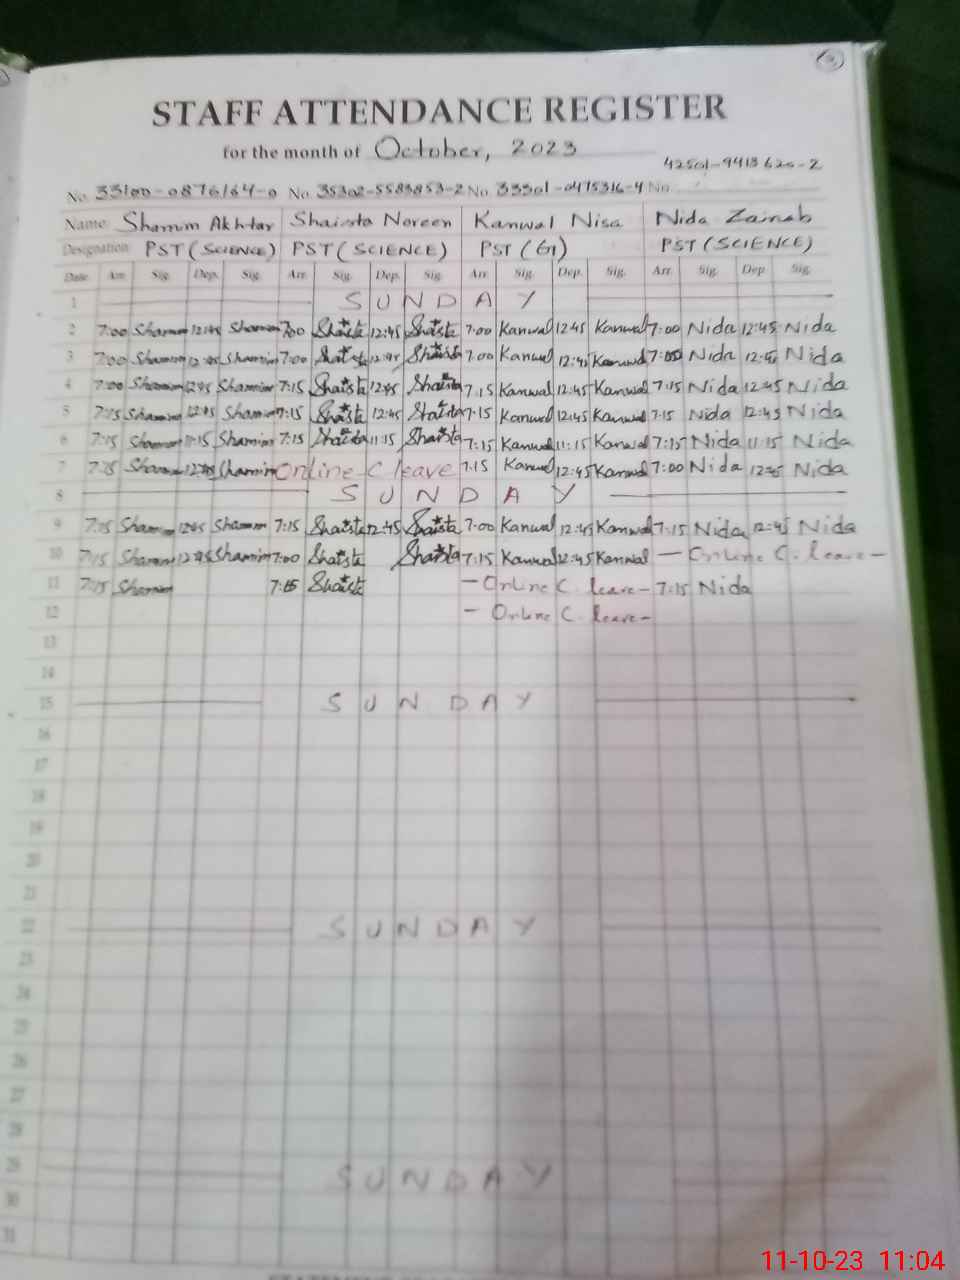 STAFF ATTENDANCE REGISTER
for the month of October, 2023
42501-9413620-2
No. 33100-0876164-0 No. 35302-5583853-2 No. 33301-0475316-4 No.
Name: Shamim Akhtar Shaista Noreen Kanwal Nisa Nida Zainab
Designation PST (SCIENCE) PST (SCIENCE) PST (G) PST (SCIENCE)
Date Arr. Sig. Dep. Sig. Arr. Sig. Dep. Sig. Arr. Sig. Dep. Sig. Arr. Sig. Dep Sig.
1 SUNDAY
2 7:00 Shamim 12:45 Shamim 7:00 Shaista 12:45 Shaista 7:00 Kanwal 12:45 Kanwal 7:00 Nida 12:45 Nida
3 7:00 Shamim 12:45 Shamim 7:00 Shaista 12:45 Shaista 7:00 Kanwal 12:45 Kanwal 7:00 Nida 12:45 Nida
4 7:00 Shamim 12:45 Shamim 7:15 Shaista 12:45 Shaista 7:15 Kanwal 12:45 Kanwal 7:15 Nida 12:45 Nida
5 7:15 Shamim 12:45 Shamim 7:15 Shaista 12:45 Shaista 7:15 Kanwal 12:45 Kanwal 7:15 Nida 12:45 Nida
6 7:15 Shamim 11:15 Shamim 7:15 Shaista 11:15 Shaista 7:15 Kanwal 11:15 Kanwal 7:15 Nida 11:15 Nida
7 7:15 Shamim 12:45 Shamim Online C leave 7:15 Kanwal 12:45 Kanwal 7:00 Nida 12:45 Nida
8 SUNDAY
9 7:15 Shamim 12:45 Shamim 7:15 Shaista 12:45 Shaista 7:00 Kanwal 12:45 Kanwal 7:15 Nida 12:45 Nida
10 7:15 Shamim 12:45 Shamim 7:00 Shaista Shaista 7:15 Kanwal 12:45 Kanwal - Online C. leave -
11 7:15 Shamim 7:15 Shaista - Online C. leave - 7:15 Nida
12 - Online C. leave -
13
14
15 SUNDAY
16
17
18
19
20
21
22 SUNDAY
23
24
25
26
27
28
29 SUNDAY
30
31
11-10-23 11:04